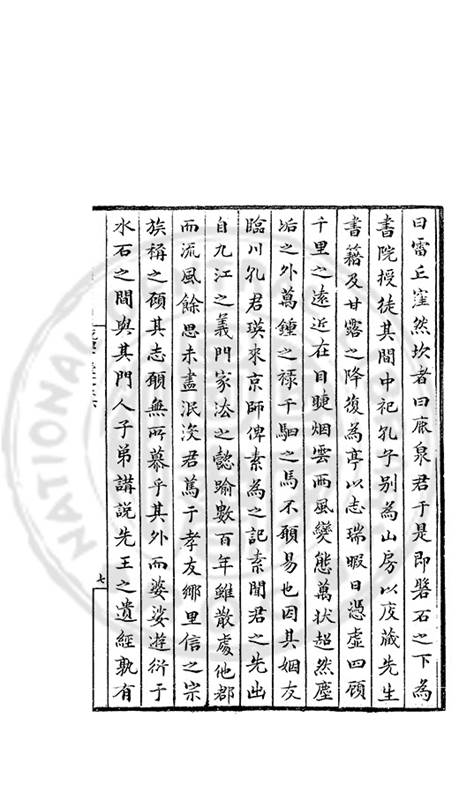 曰雷丘窪然坎者曰廉泉君于是即磐石之下為
書院授徒其間中祀孔子别為山房以庋藏先生
書籍及甘露之降復為亭以志瑞暇日憑虚四顧
千里之逺近在目睫烟雲雨風變態萬状超然塵
垢之外萬鍾之禄千駟之馬不願易也因其姻友
臨川孔君瑛來京師俾素為之記素聞君之先出
自九江之義門家法之懿踰數百年雖散處他郡
而流風餘思未盡泯没君篤于孝友鄉里信之宗
族稱之顧其志願無所慕乎其外而婆娑遊衍于
水石之間與其門人子弟講説先王之遺經孰有
七
NATIONAL